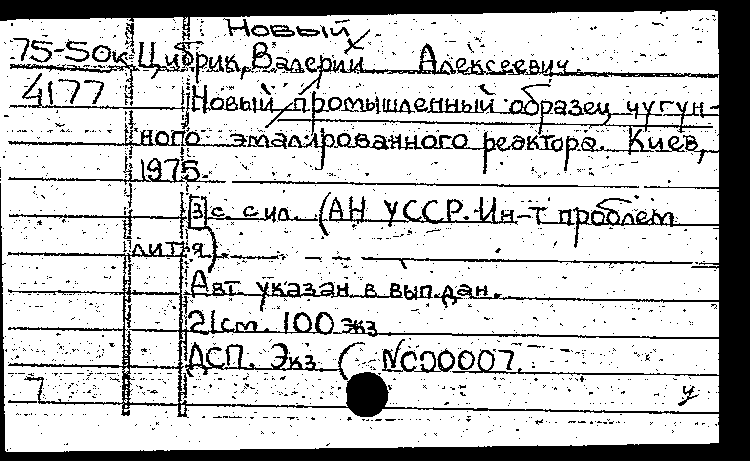 Новый
75-50к Цибрик, Валерий Алексеевич.
4177 Новый промышленный образец чугун-
ного эмалированного реактора. Киев,
1975.
[3] с. с ил. (АН УССР. Ин-т проблем
литья).
Авт. указан в вып. дан.
21 см. 100 экз.
ДСП. Экз. ( №00007.
7 у